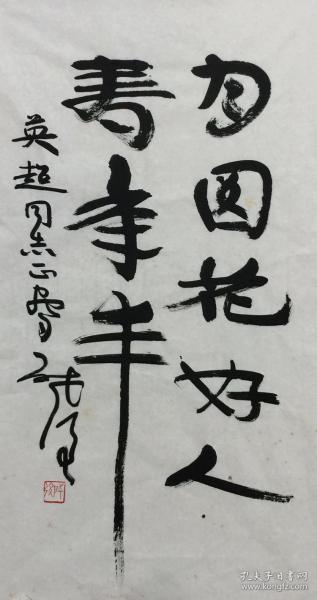 月圆花好人
寿年丰
英超同志正
孔夫子旧书网